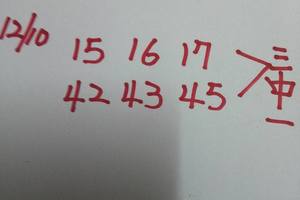 12/10
15 16 17
42 43 45
三中一